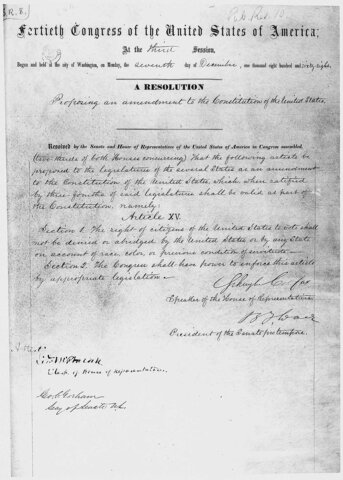 R. 8.
Pub Res 10
Fortieth Congress of the United States of America;
At the third Session,
Begun and held at the city of Washington, on Monday, the seventh day of December, one thousand eight hundred and sixty-eight.
A RESOLUTION
Proposing an amendment to the Constitution of the United States.
Resolved by the Senate and House of Representatives of the United States of America in Congress assembled,
(two-thirds of both Houses concurring) That the following article be
proposed to the legislatures of the several States as an amendment
to the Constitution of the United States, which, when ratified
by three-fourths of said legislatures shall be valid as part of
the Constitution, namely:
Article XV.
Section 1. The right of citizens of the United States to vote shall
not be denied or abridged by the United States or by any State
on account of race, color, or previous condition of servitude—
Section 2. The Congress shall have power to enforce this article
by appropriate legislation—
Schuyler Colfax
Speaker of the House of Representatives.
B F Wade
President of the Senate pro tempore.
Attest:
Edw McPherson
Clerk of House of Representatives.
Geo C Gorham
Secy of Senate U.S.